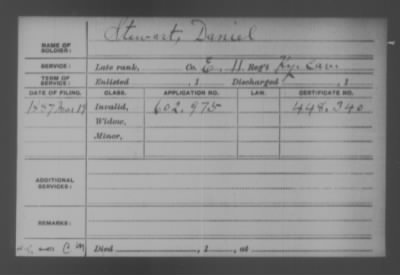 Stewart, Daniel
NAME OF SOLDIER:
SERVICE: Late rank, Co. E. 11 Reg't Ky. Cav.
TERM OF SERVICE: Enlisted , 1 Discharged , 1
DATE OF FILING. CLASS. APPLICATION NO. LAW. CERTIFICATE NO.
1887 Mar 19 Invalid, 602.975 448.340
Widow,
Minor,
ADDITIONAL SERVICES:
REMARKS:
Died , 1 , at